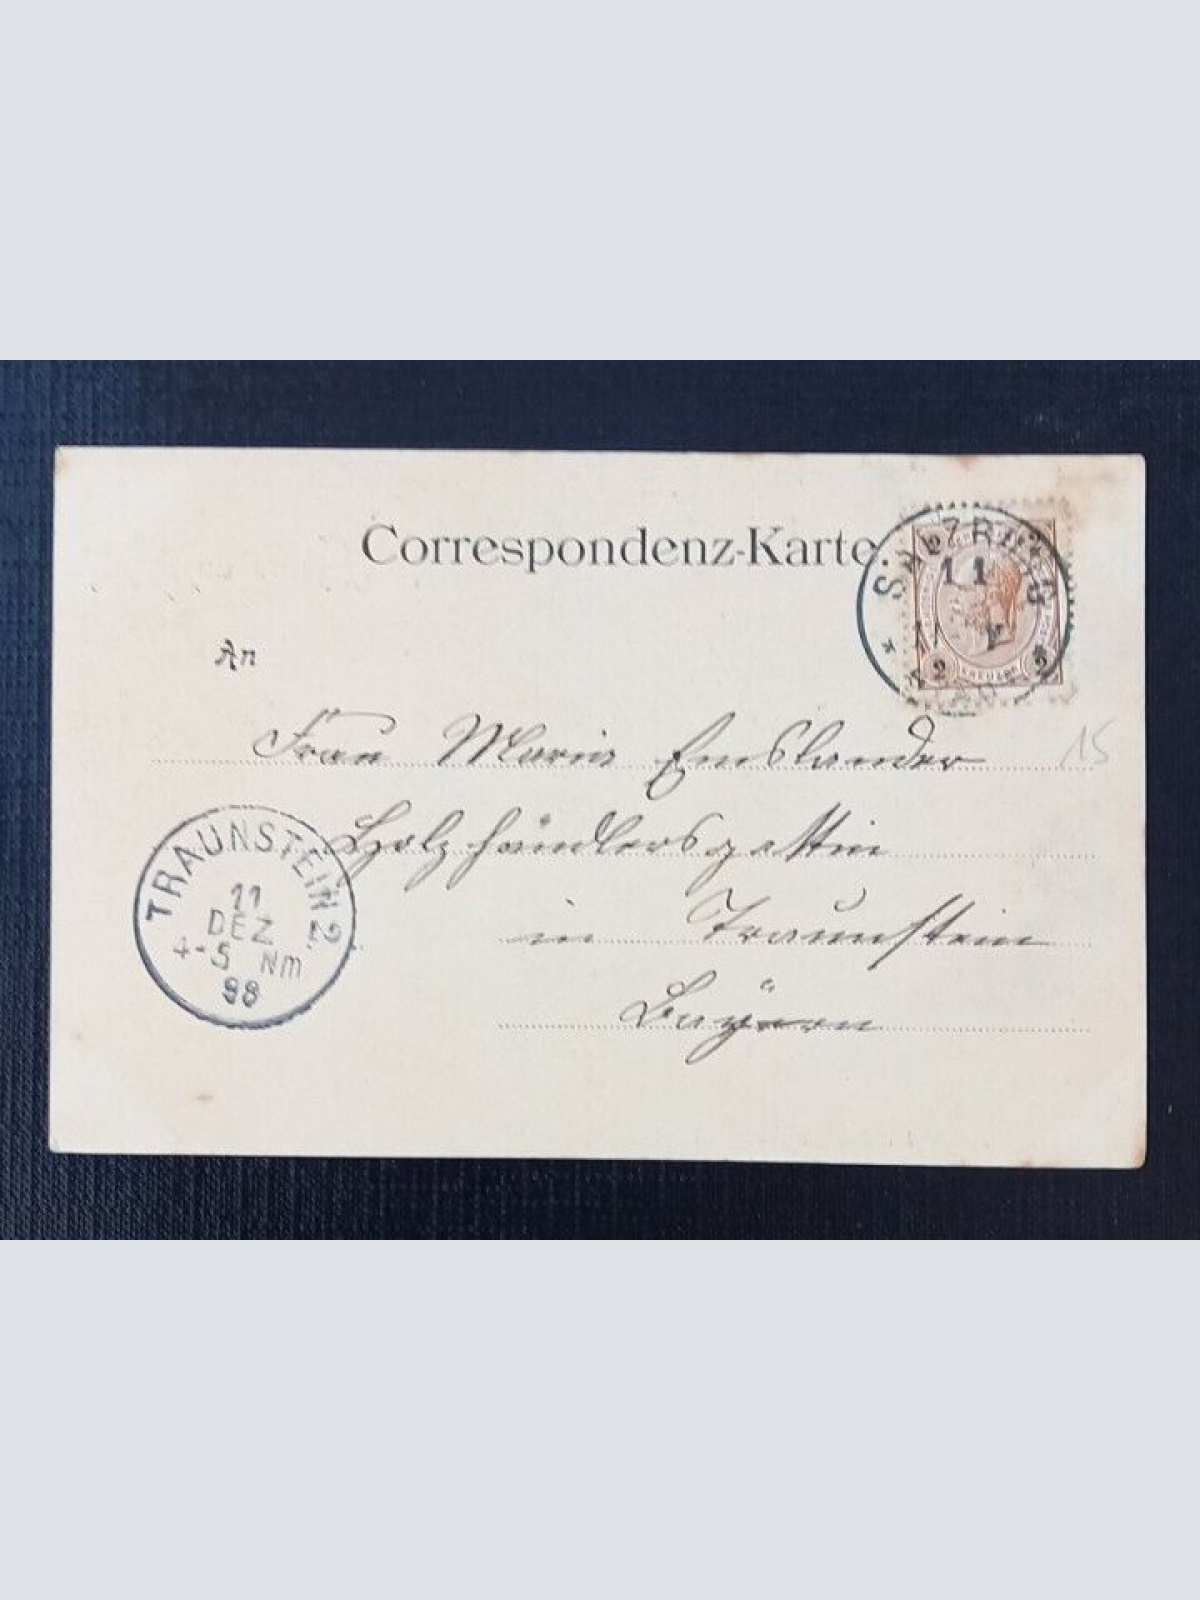 Correspondenz-Karte
SALZBURG
11
2 2
KREUZER
An
15
Frau Maria Emslander
Holzhändlersgattin
in Traunstein
Bayern
TRAUNSTEIN 2.
11
DEZ
4-5 Nm
98